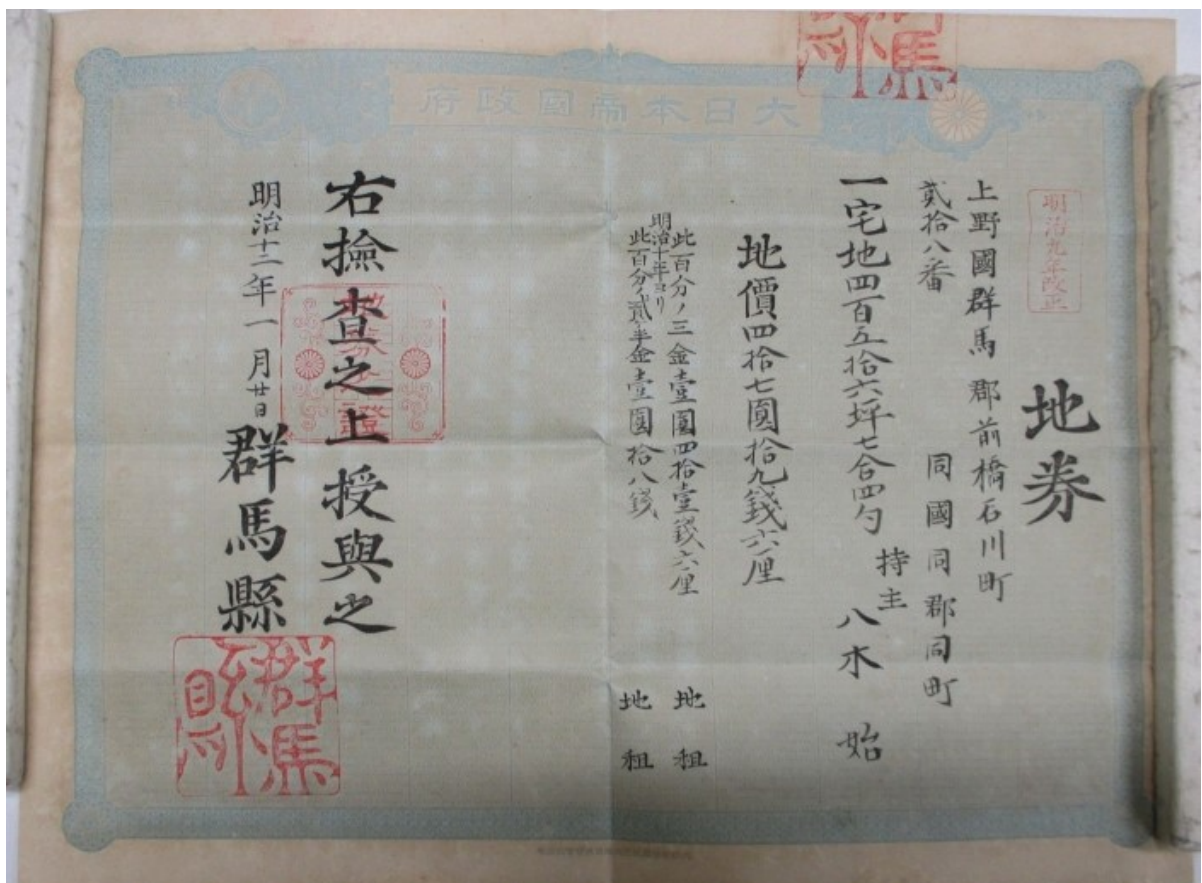 大日本帝國政府
明治九年改正
地券
上野國群馬 郡前橋石川町
貳拾八番
同國同郡同町
一宅地四百五拾六坪七合四勺
持主 八木 始
地價四拾七圓拾九錢六厘
此百分ノ三金壹圓四拾壹錢六厘 地租
明治十年ヨリ
此百分ノ貳半金壹圓拾八錢 地租
右撿査之上授與之
地券之證
明治十二年一月廿日
群馬縣